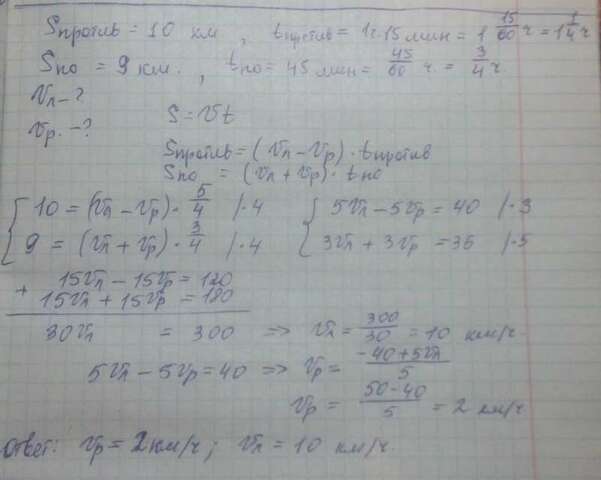 Sпротив = 10 км, tпротив = 1ч.15 мин = 1 15/60 ч = 1 1/4 ч
Sпо = 9 км., tпо = 45 мин = 45/60 ч. = 3/4 ч.
Vл - ?
Vр. - ?
S = Vt
Sпротив = (Vл - Vр) · tпротив
Sпо = (Vл + Vр) · tпо
{ 10 = (Vл - Vр) · 5/4 /·4 { 5Vл - 5Vр = 40 /·3
9 = (Vл + Vр) · 3/4 /·4 3Vл + 3Vр = 36 /·5
+ 15Vл - 15Vр = 120
15Vл + 15Vр = 180
30Vл = 300 => Vл = 300/30 = 10 км/ч.
5Vл - 5Vр = 40 => Vр = -40+5Vл/5
Vр = 50-40/5 = 2 км/ч
Ответ: Vр = 2 км/ч; Vл = 10 км/ч.